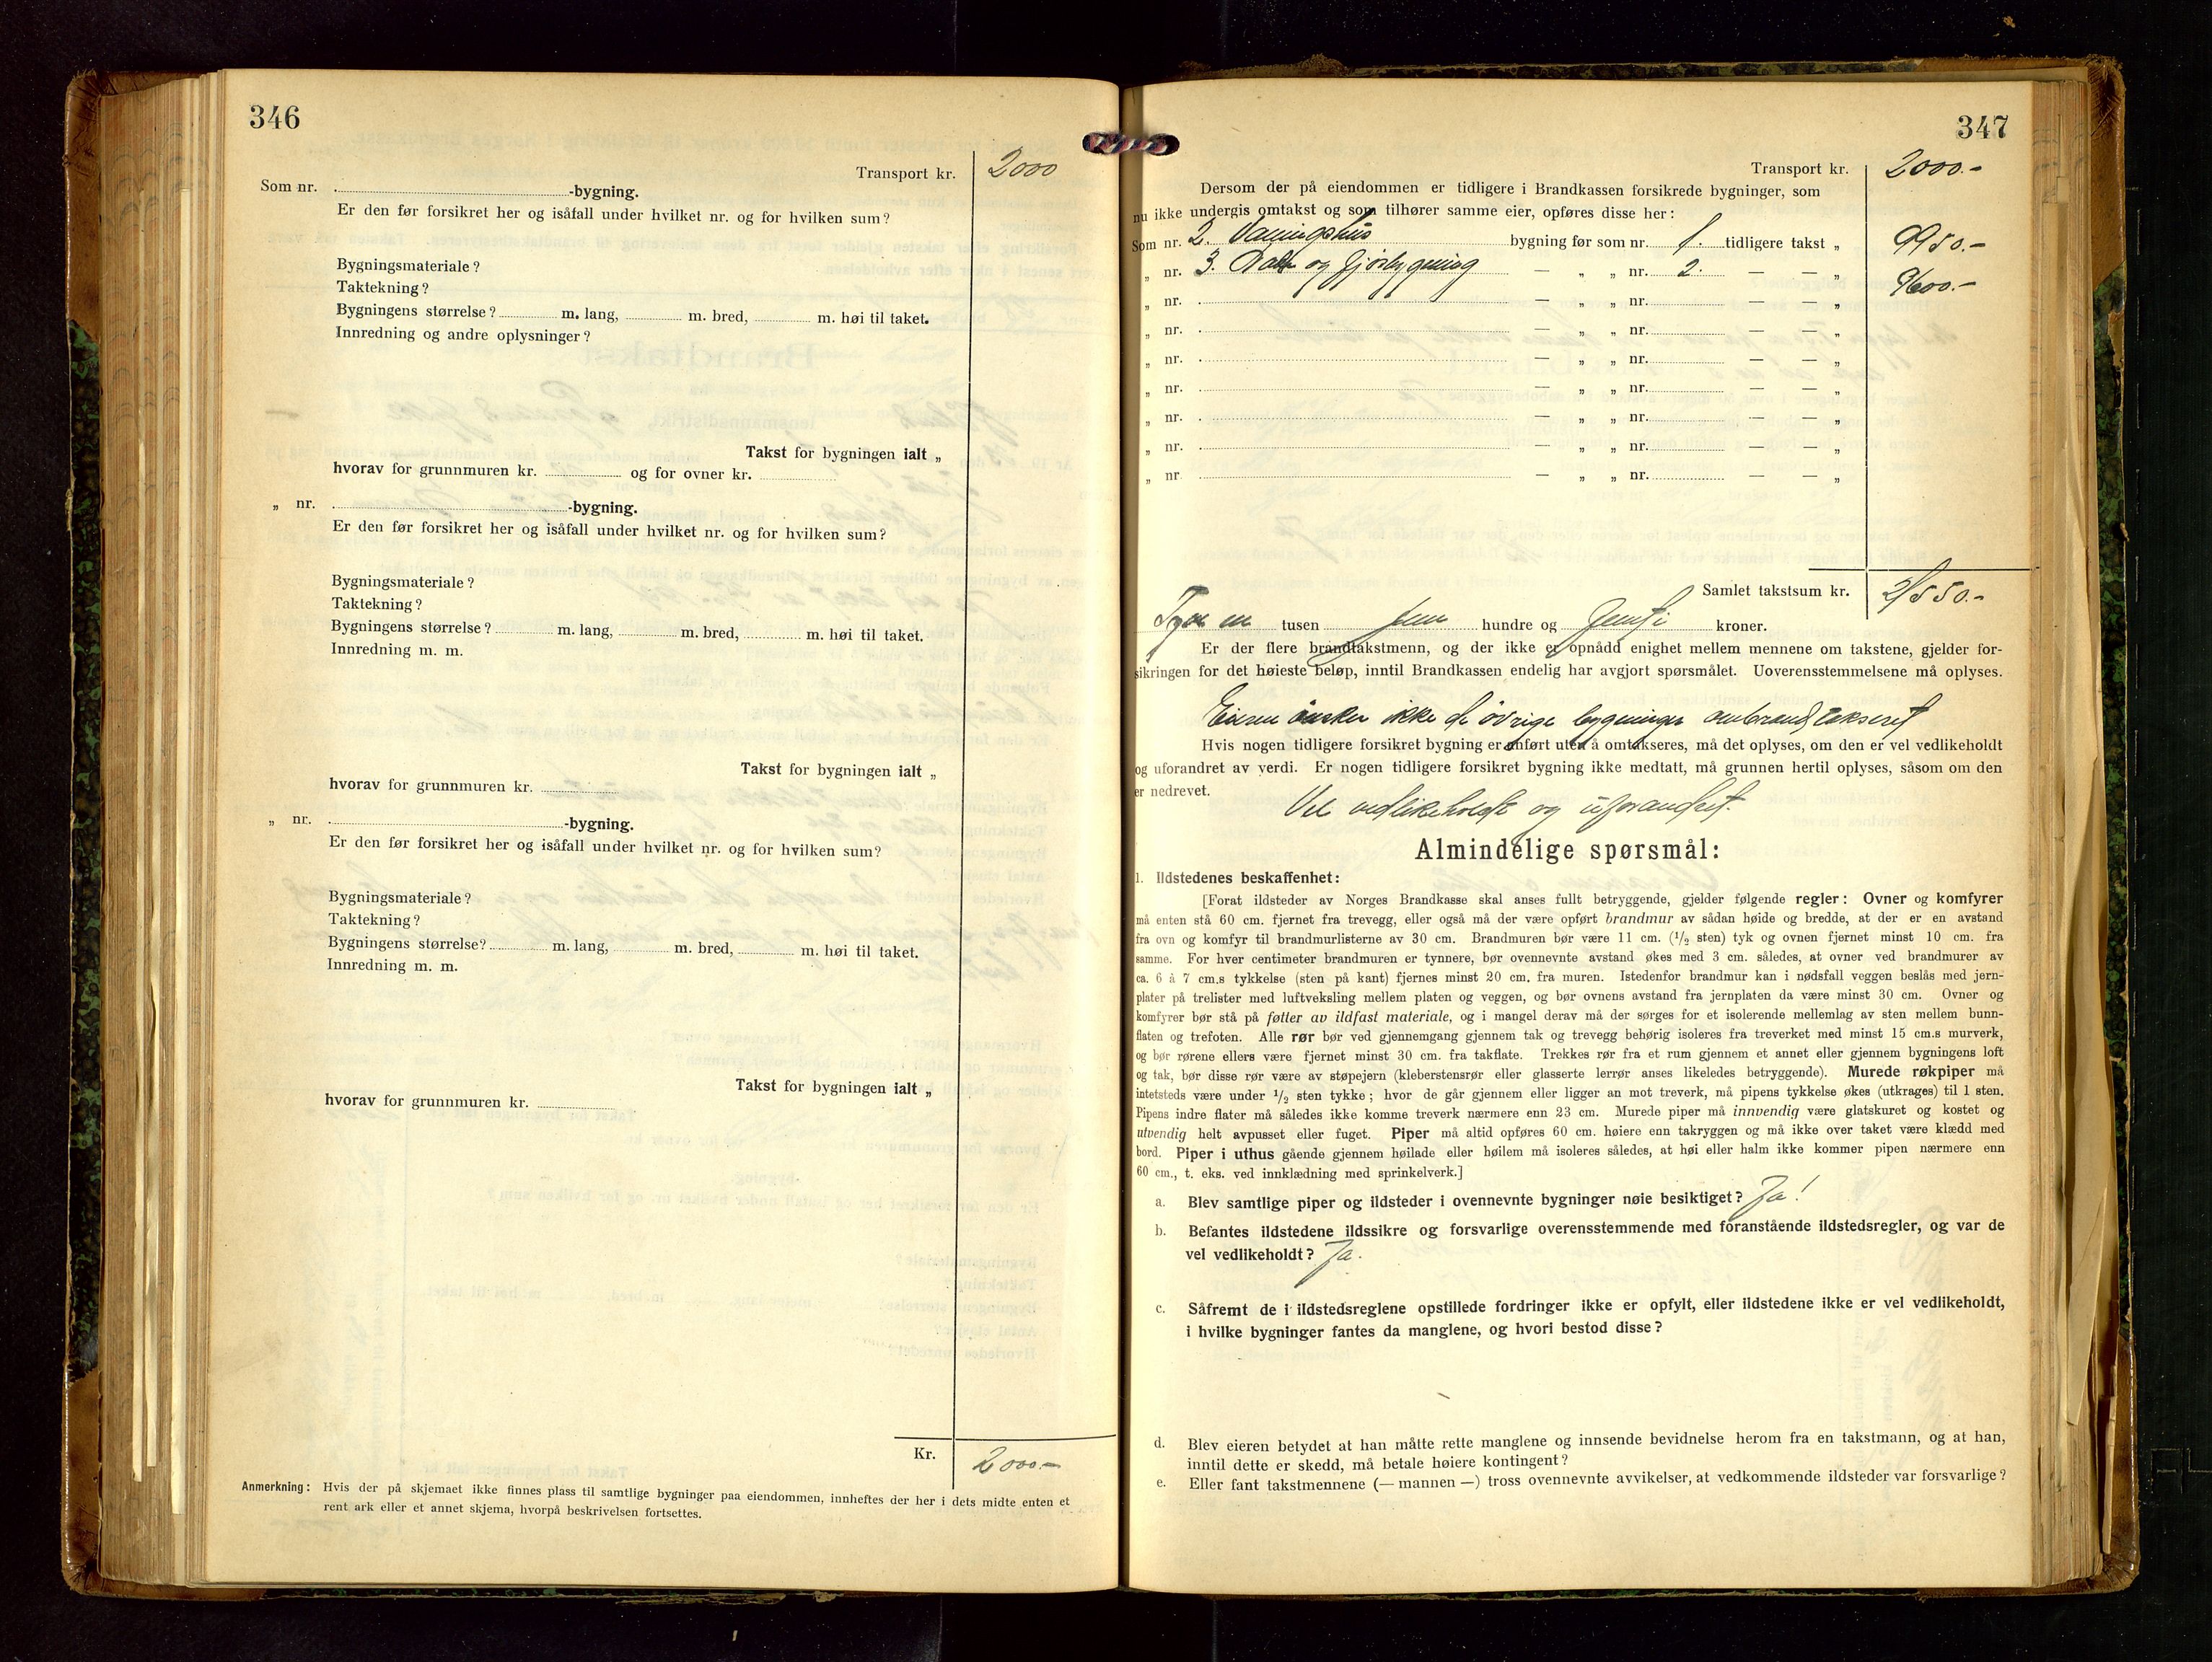 346
Transport kr. 2000
Som nr. -bygning.
Er den før forsikret her og isåfall under hvilket nr. og for hvilken sum?
Bygningsmateriale?
Taktekning?
Bygningens størrelse? m. lang, m. bred, m. høi til taket.
Innredning og andre oplysninger?
Takst for bygningen ialt „
hvorav for grunnmuren kr. og for ovner kr.
„ nr. -bygning.
Er den før forsikret her og isåfall under hvilket nr. og for hvilken sum?
Bygningsmateriale?
Taktekning?
Bygningens størrelse? m. lang, m. bred, m. høi til taket.
Innredning m. m.
Takst for bygningen ialt „
hvorav for grunnmuren kr.
„ nr. -bygning.
Er den før forsikret her og isåfall under hvilket nr. og for hvilken sum?
Bygningsmateriale?
Taktekning?
Bygningens størrelse? m. lang, m. bred, m. høi til taket.
Innredning m. m.
Takst for bygningen ialt „
hvorav for grunnmuren kr.
Kr. 2000.-
Anmerkning: Hvis der på skjemaet ikke finnes plass til samtlige bygninger paa eiendommen, innheftes der her i dets midte enten et
rent ark eller et annet skjema, hvorpå beskrivelsen fortsettes.
347
Transport kr. 2000.-
Dersom der på eiendommen er tidligere i Brandkassen forsikrede bygninger, som
nu ikke undergis omtakst og som tilhører samme eier, opføres disse her:
Som nr. 2. Vaaningshus bygning før som nr. 1. tidligere takst „ 9950.-
„ nr. 3. og fjøsbygning — „ „ nr. 2. — — „ 9600.-
„ nr. — „ „ nr. — — „
„ nr. — „ „ nr. — — „
„ nr. — „ „ nr. — — „
„ nr. — „ „ nr. — — „
„ nr. — „ „ nr. — — „
„ nr. — „ „ nr. — — „
„ nr — „ „ nr. — — „
Samlet takstsum kr. 21550.-
Tyve en tusen fem hundre og femti kroner.
Er der flere brandtakstmenn, og der ikke er opnådd enighet mellem mennene om takstene, gjelder for-
sikringen for det høieste beløp, inntil Brandkassen endelig har avgjort spørsmålet. Uoverensstemmelsene må oplyses.
Eieren ønsker ikke de øvrige bygninger ombrandtaksert
Hvis nogen tidligere forsikret bygning er anført uten å omtakseres, må det oplyses, om den er vel vedlikeholdt
og uforandret av verdi. Er nogen tidligere forsikret bygning ikke medtatt, må grunnen hertil oplyses, såsom om den
er nedrevet.
Vel vedlikeholdt og uforandret.
Almindelige spørsmål:
1. Ildstedenes beskaffenhet:
[Forat ildsteder av Norges Brandkasse skal anses fullt betryggende, gjelder følgende regler: Ovner og komfyrer
må enten stå 60 cm. fjernet fra trevegg, eller også må der være opført brandmur av sådan høide og bredde, at der er en avstand
fra ovn og komfyr til brandmurlisterne av 30 cm. Brandmuren bør være 11 cm. (1/2 sten) tyk og ovnen fjernet minst 10 cm. fra
samme. For hver centimeter brandmuren er tynnere, bør ovennevnte avstand økes med 3 cm. således, at ovner ved brandmurer av
ca. 6 à 7 cm.s tykkelse (sten på kant) fjernes minst 20 cm. fra muren. Istedenfor brandmur kan i nødsfall veggen beslås med jern-
plater på trelister med luftveksling mellem platen og veggen, og bør ovnens avstand fra jernplaten da være minst 30 cm. Ovner og
komfyrer bør stå på føtter av ildfast materiale, og i mangel derav må der sørges for et isolerende mellemlag av sten mellem bunn-
flaten og trefoten. Alle rør bør ved gjennemgang gjennem tak og trevegg behørig isoleres fra treverket med minst 15 cm.s murverk,
og bør rørene ellers være fjernet minst 30 cm. fra takflate. Trekkes rør fra et rum gjennem et annet eller gjennem bygningens loft
og tak, bør disse rør være av støpejern (kleberstensrør eller glasserte lerrør anses likeledes betryggende). Murede røkpiper må
intetsteds være under 1/2 sten tykke; hvor de går gjennem eller ligger an mot treverk, må pipens tykkelse økes (utkrages) til 1 sten.
Pipens indre flater må således ikke komme treverk nærmere enn 23 cm. Murede piper må innvendig være glatskuret og kostet og
utvendig helt avpusset eller fuget. Piper må altid opføres 60 cm. høiere enn takryggen og må ikke over taket være klædd med
bord. Piper i uthus gående gjennem høilade eller høilem må isoleres således, at høi eller halm ikke kommer pipen nærmere enn
60 cm., t. eks. ved innklædning med sprinkelverk.]
a. Blev samtlige piper og ildsteder i ovennevnte bygninger nøie besiktiget? Ja!
b. Befantes ildstedene ildssikre og forsvarlige overensstemmende med foranstående ildstedsregler, og var de
vel vedlikeholdt? Ja.
c. Såfremt de i ildstedsreglene opstillede fordringer ikke er opfylt, eller ildstedene ikke er vel vedlikeholdt,
i hvilke bygninger fantes da manglene, og hvori bestod disse?
d. Blev eieren betydet at han måtte rette manglene og innsende bevidnelse herom fra en takstmann, og at han,
inntil dette er skedd, må betale høiere kontingent?
e. Eller fant takstmennene (— mannen —) tross ovennevnte avvikelser, at vedkommende ildsteder var forsvarlige?